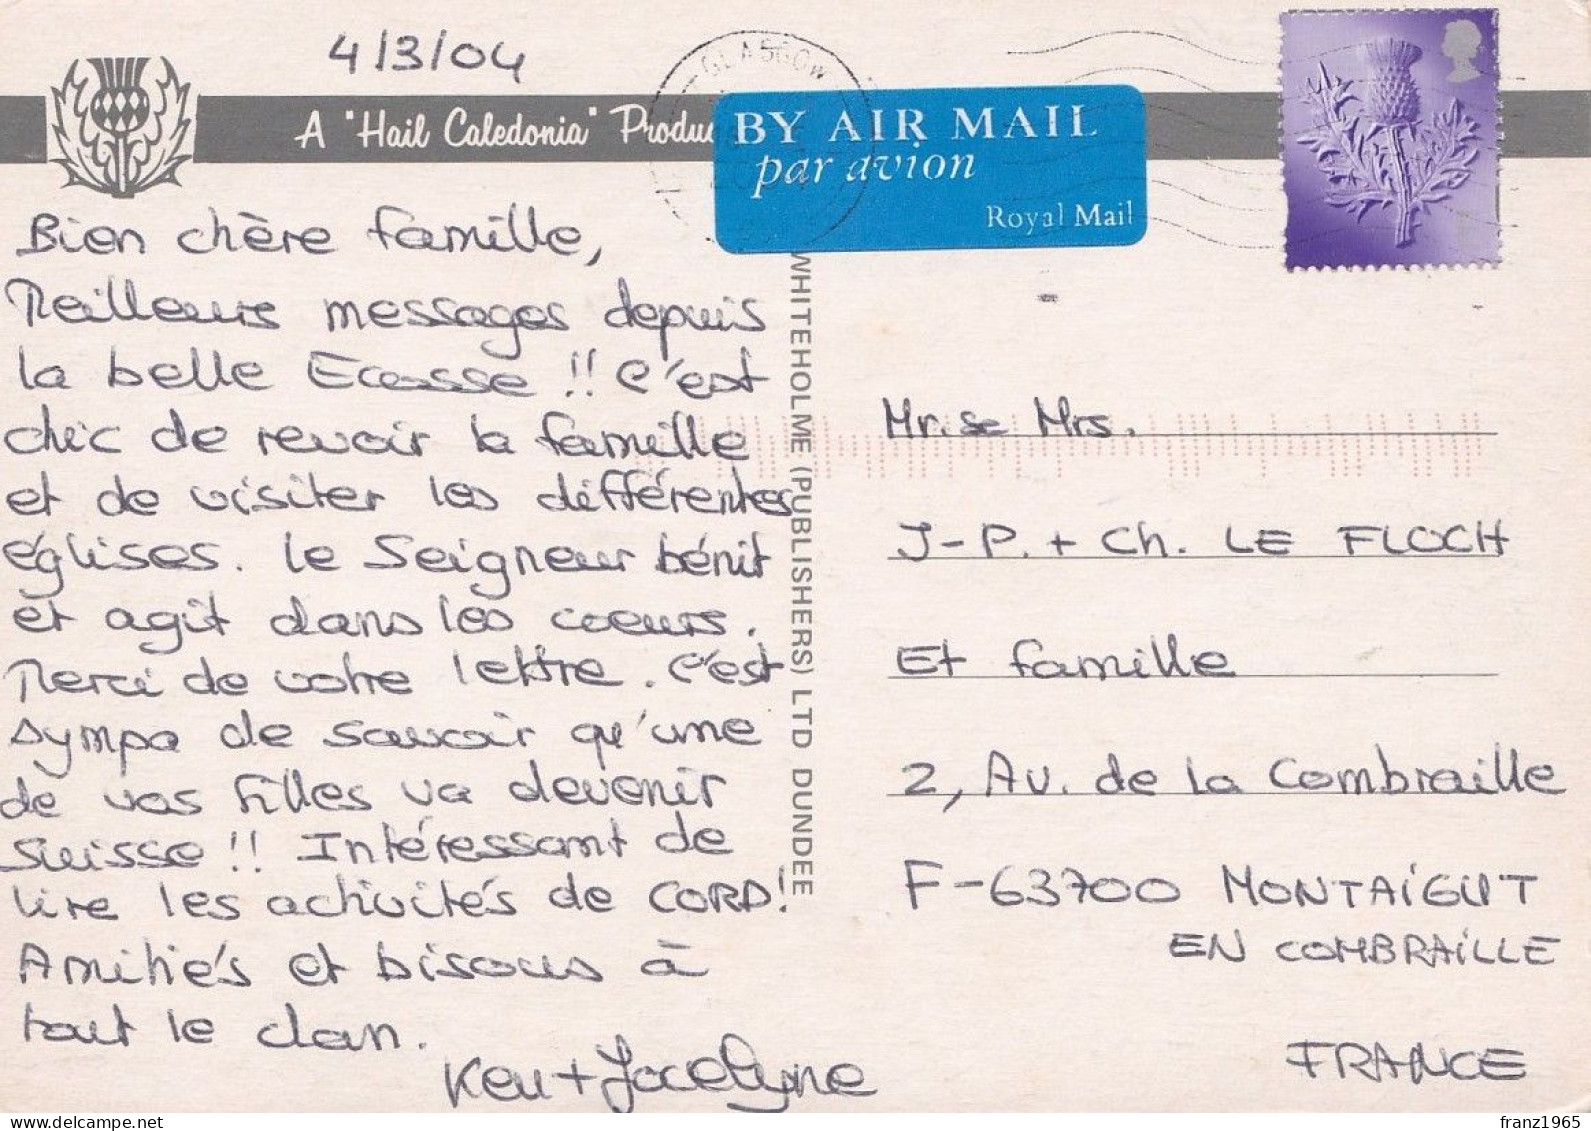 4/3/04
A "Hail Caledonia" Produc
GLASGOW
BY AIR MAIL
par avion
Royal Mail
Bien chère famille,
Meilleurs messages depuis
la belle Ecosse !! C'est
chic de revoir la famille
et de visiter les différentes
églises. Le Seigneur bénit
et agit dans les coeurs.
Merci de votre lettre. C'est
sympa de savoir qu'une
de vos filles va devenir
suisse !! Intéressant de
lire les activités de CORD!
Amitiés et bisous à
tout le clan.
Ken + Jocelyne
WHITEHOLME (PUBLISHERS) LTD DUNDEE
Mr. & Mrs.
J-P. + Ch. LE FLOCH
Et famille
2, Av. de la Combraille
F-63700 MONTAIGUT
EN COMBRAILLE
FRANCE
franz1965